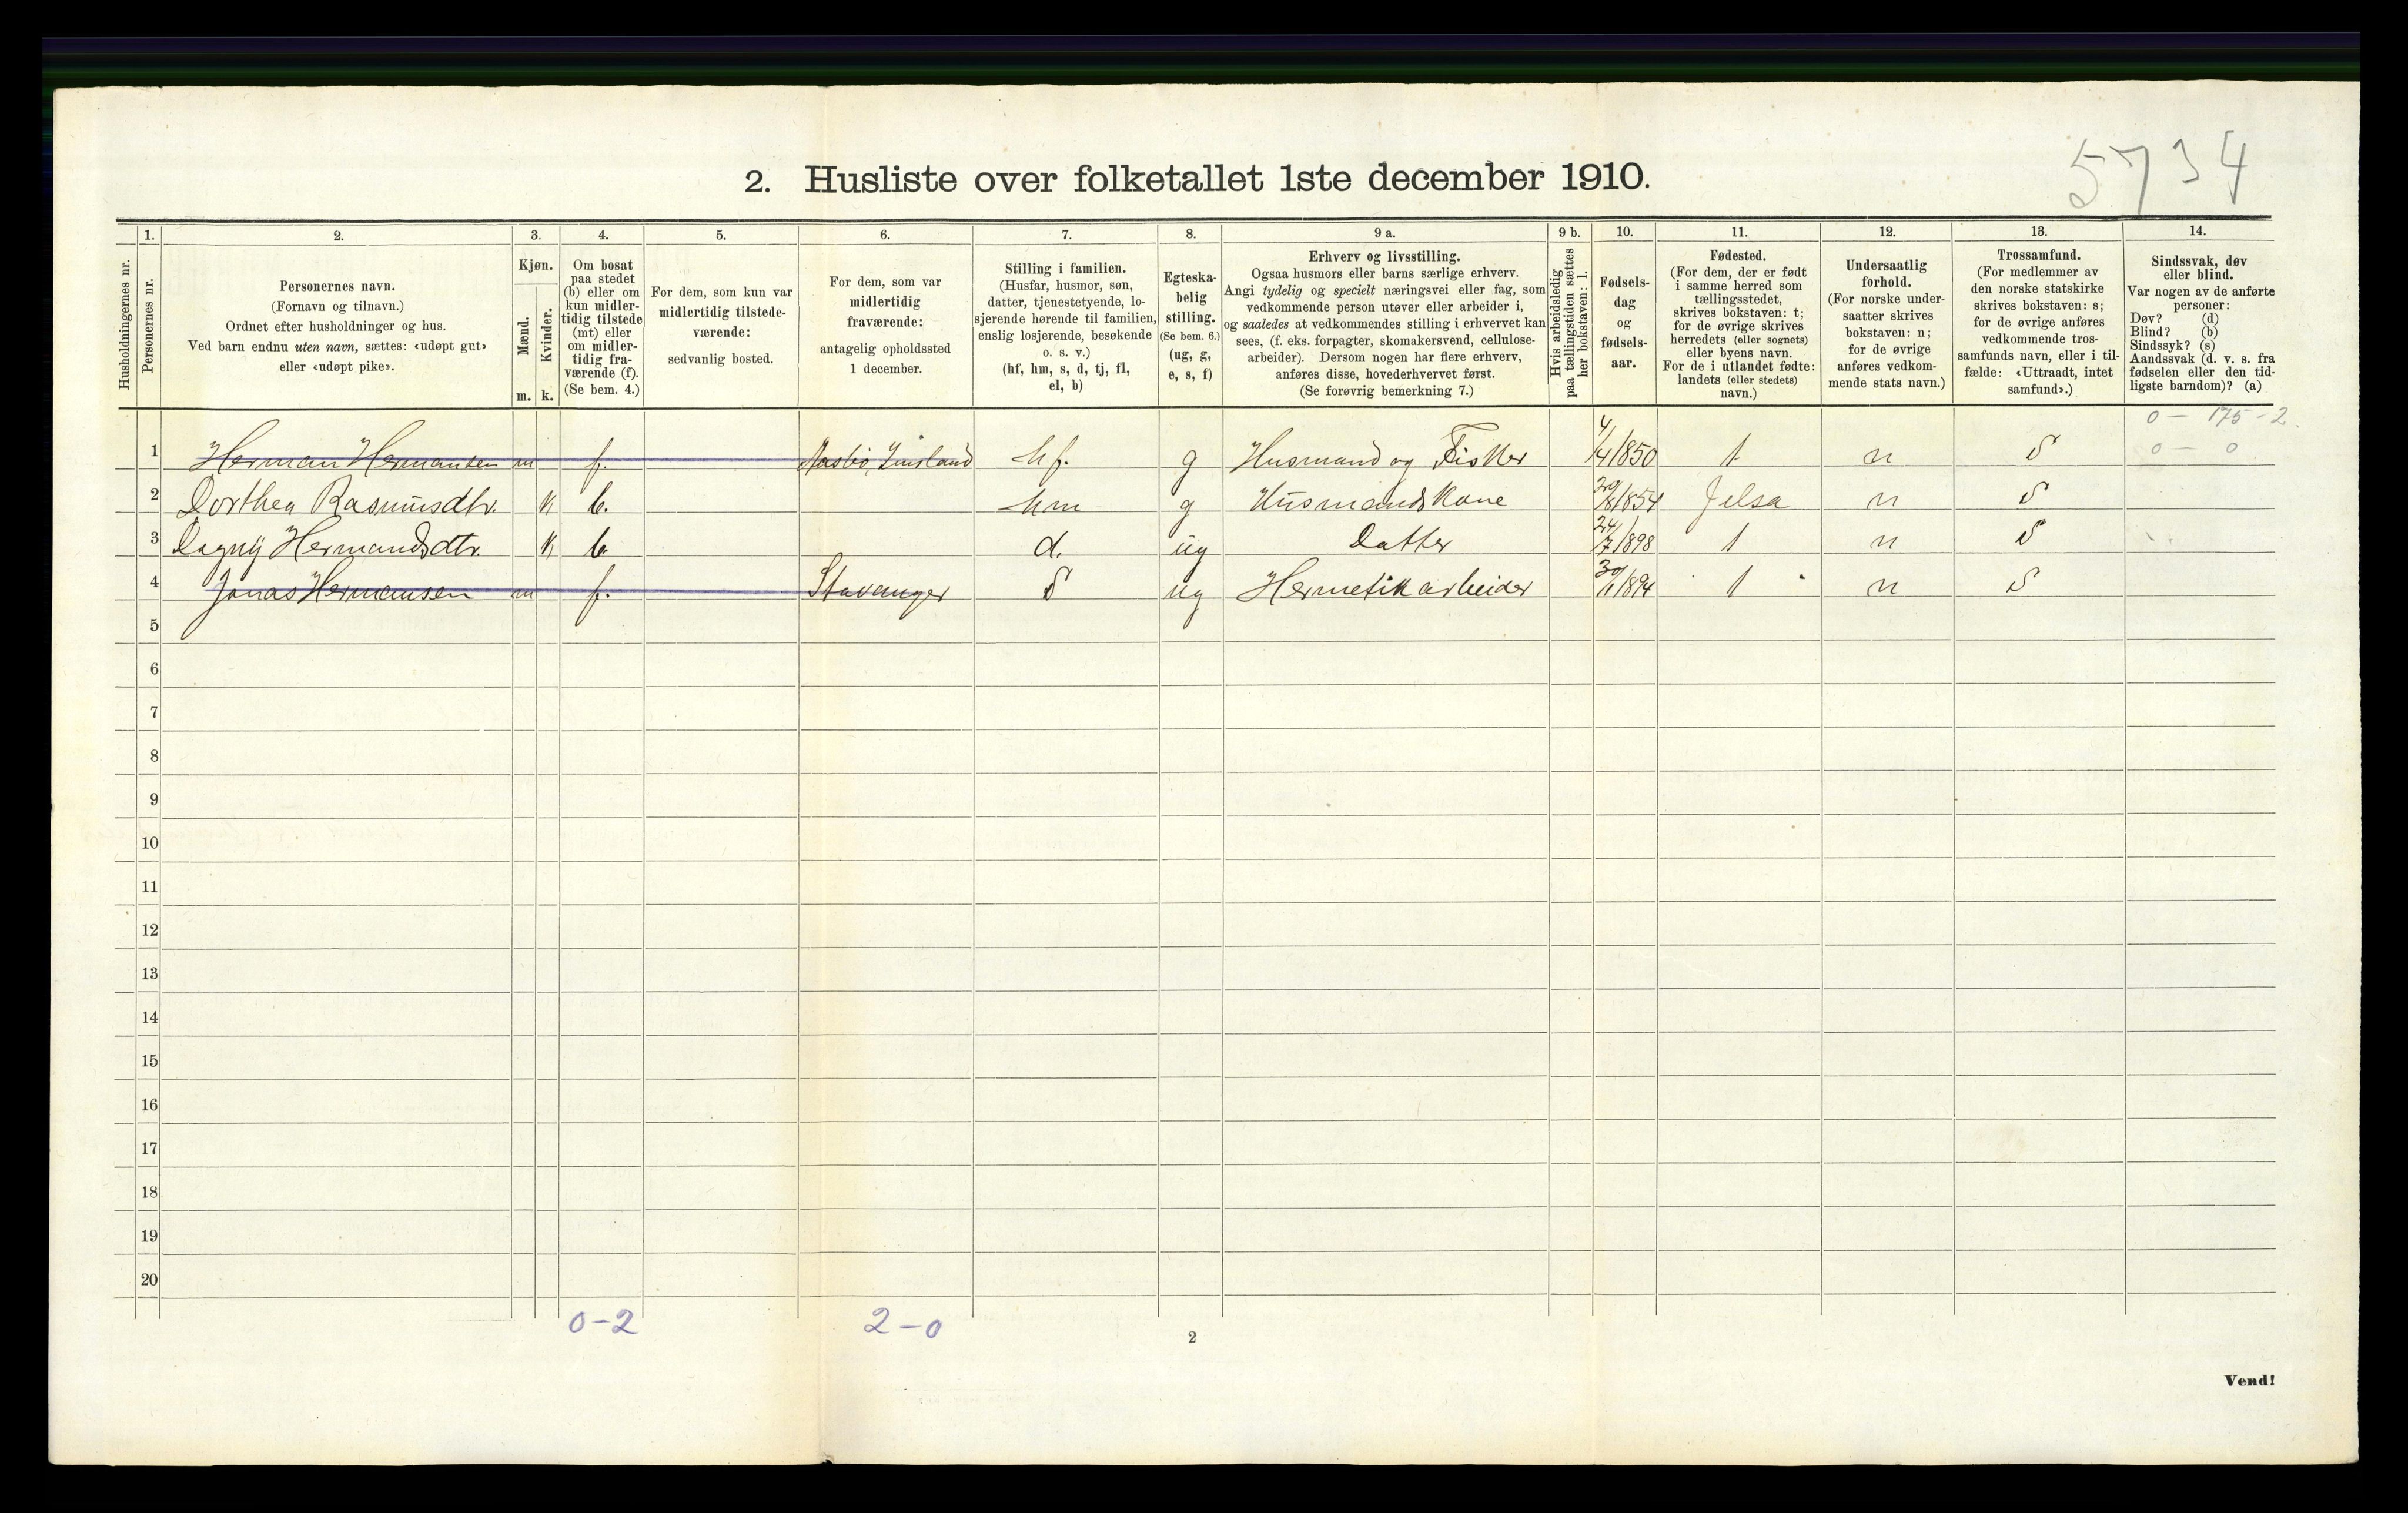 5734
2. Husliste over folketallet 1ste december 1910.
Husholdningernes nr.
1.
Personernes nr.
2.
Personernes navn.
(Fornavn og tilnavn.)
Ordnet efter husholdninger og hus.
Ved barn endnu uten navn, sættes: «udøpt gut»
eller «udøpt pike».
3.
Kjøn.
Mænd.
Kvinder.
m. k.
4.
Om bosat
paa stedet
(b) eller om
kun midler-
tidig tilstede
(mt) eller
om midler-
tidig fra-
værende (f).
(Se bem. 4.)
5.
For dem, som kun var
midlertidig tilstede-
værende:
sedvanlig bosted.
6.
For dem, som var
midlertidig
fraværende:
antagelig opholdssted
1 december.
7.
Stilling i familien.
(Husfar, husmor, søn,
datter, tjenestetyende, lo-
sjerende hørende til familien,
enslig losjerende, besøkende
o. s. v.)
(hf, hm, s, d, tj, fl,
el, b)
8.
Egteska-
belig
stilling.
(Se bem. 6.)
(ug, g,
e, s, f)
9 a.
Erhverv og livsstilling.
Ogsaa husmors eller barns særlige erhverv.
Angi tydelig og specielt næringsvei eller fag, som
vedkommende person utøver eller arbeider i,
og saaledes at vedkommendes stilling i erhvervet kan
sees, (f. eks. forpagter, skomakersvend, cellulose-
arbeider). Dersom nogen har flere erhverv,
anføres disse, hovederhvervet først.
(Se forøvrig bemerkning 7.)
9 b.
Hvis arbeidsledig
paa tællingstiden sættes
her bokstaven: l.
10.
Fødsels-
dag
og
fødsels-
aar.
11.
Fødested.
(For dem, der er født
i samme herred som
tællingsstedet,
skrives bokstaven: t;
for de øvrige skrives
herredets (eller sognets)
eller byens navn.
For de i utlandet fødte:
landets (eller stedets)
navn.)
12.
Undersaatlig
forhold.
(For norske under-
saatter skrives
bokstaven: n;
for de øvrige
anføres vedkom-
mende stats navn.)
13.
Trossamfund.
(For medlemmer av
den norske statskirke
skrives bokstaven: s;
for de øvrige anføres
vedkommende tros-
samfunds navn, eller i til-
fælde: «Uttraadt, intet
samfund».)
14.
Sindssvak, døv
eller blind.
Var nogen av de anførte
personer:
Døv? (d)
Blind? (b)
Sindssyk? (s)
Aandssvak (d. v. s. fra
fødselen eller den tid-
ligste barndom)? (a)
0 - 175 - 2.
1 Herman Hermansen m f. hf. g Husmand og Fisker 1850 t n S 0 - 0
2 Dorthea Rasmusdtr. k b. hm g Husmands Kone 1854 Jelsa n S
3 Dagny Hermandsdtr. k b d. ug Datter 24/7 1898 t n S
4 Jonas Hermansen m f. Stavanger S ug Hermetikarbeider 1894 t n S
5
6
7
8
9
10
11
12
13
14
15
16
17
18
19
20
0-2 2-0
2
Vend!